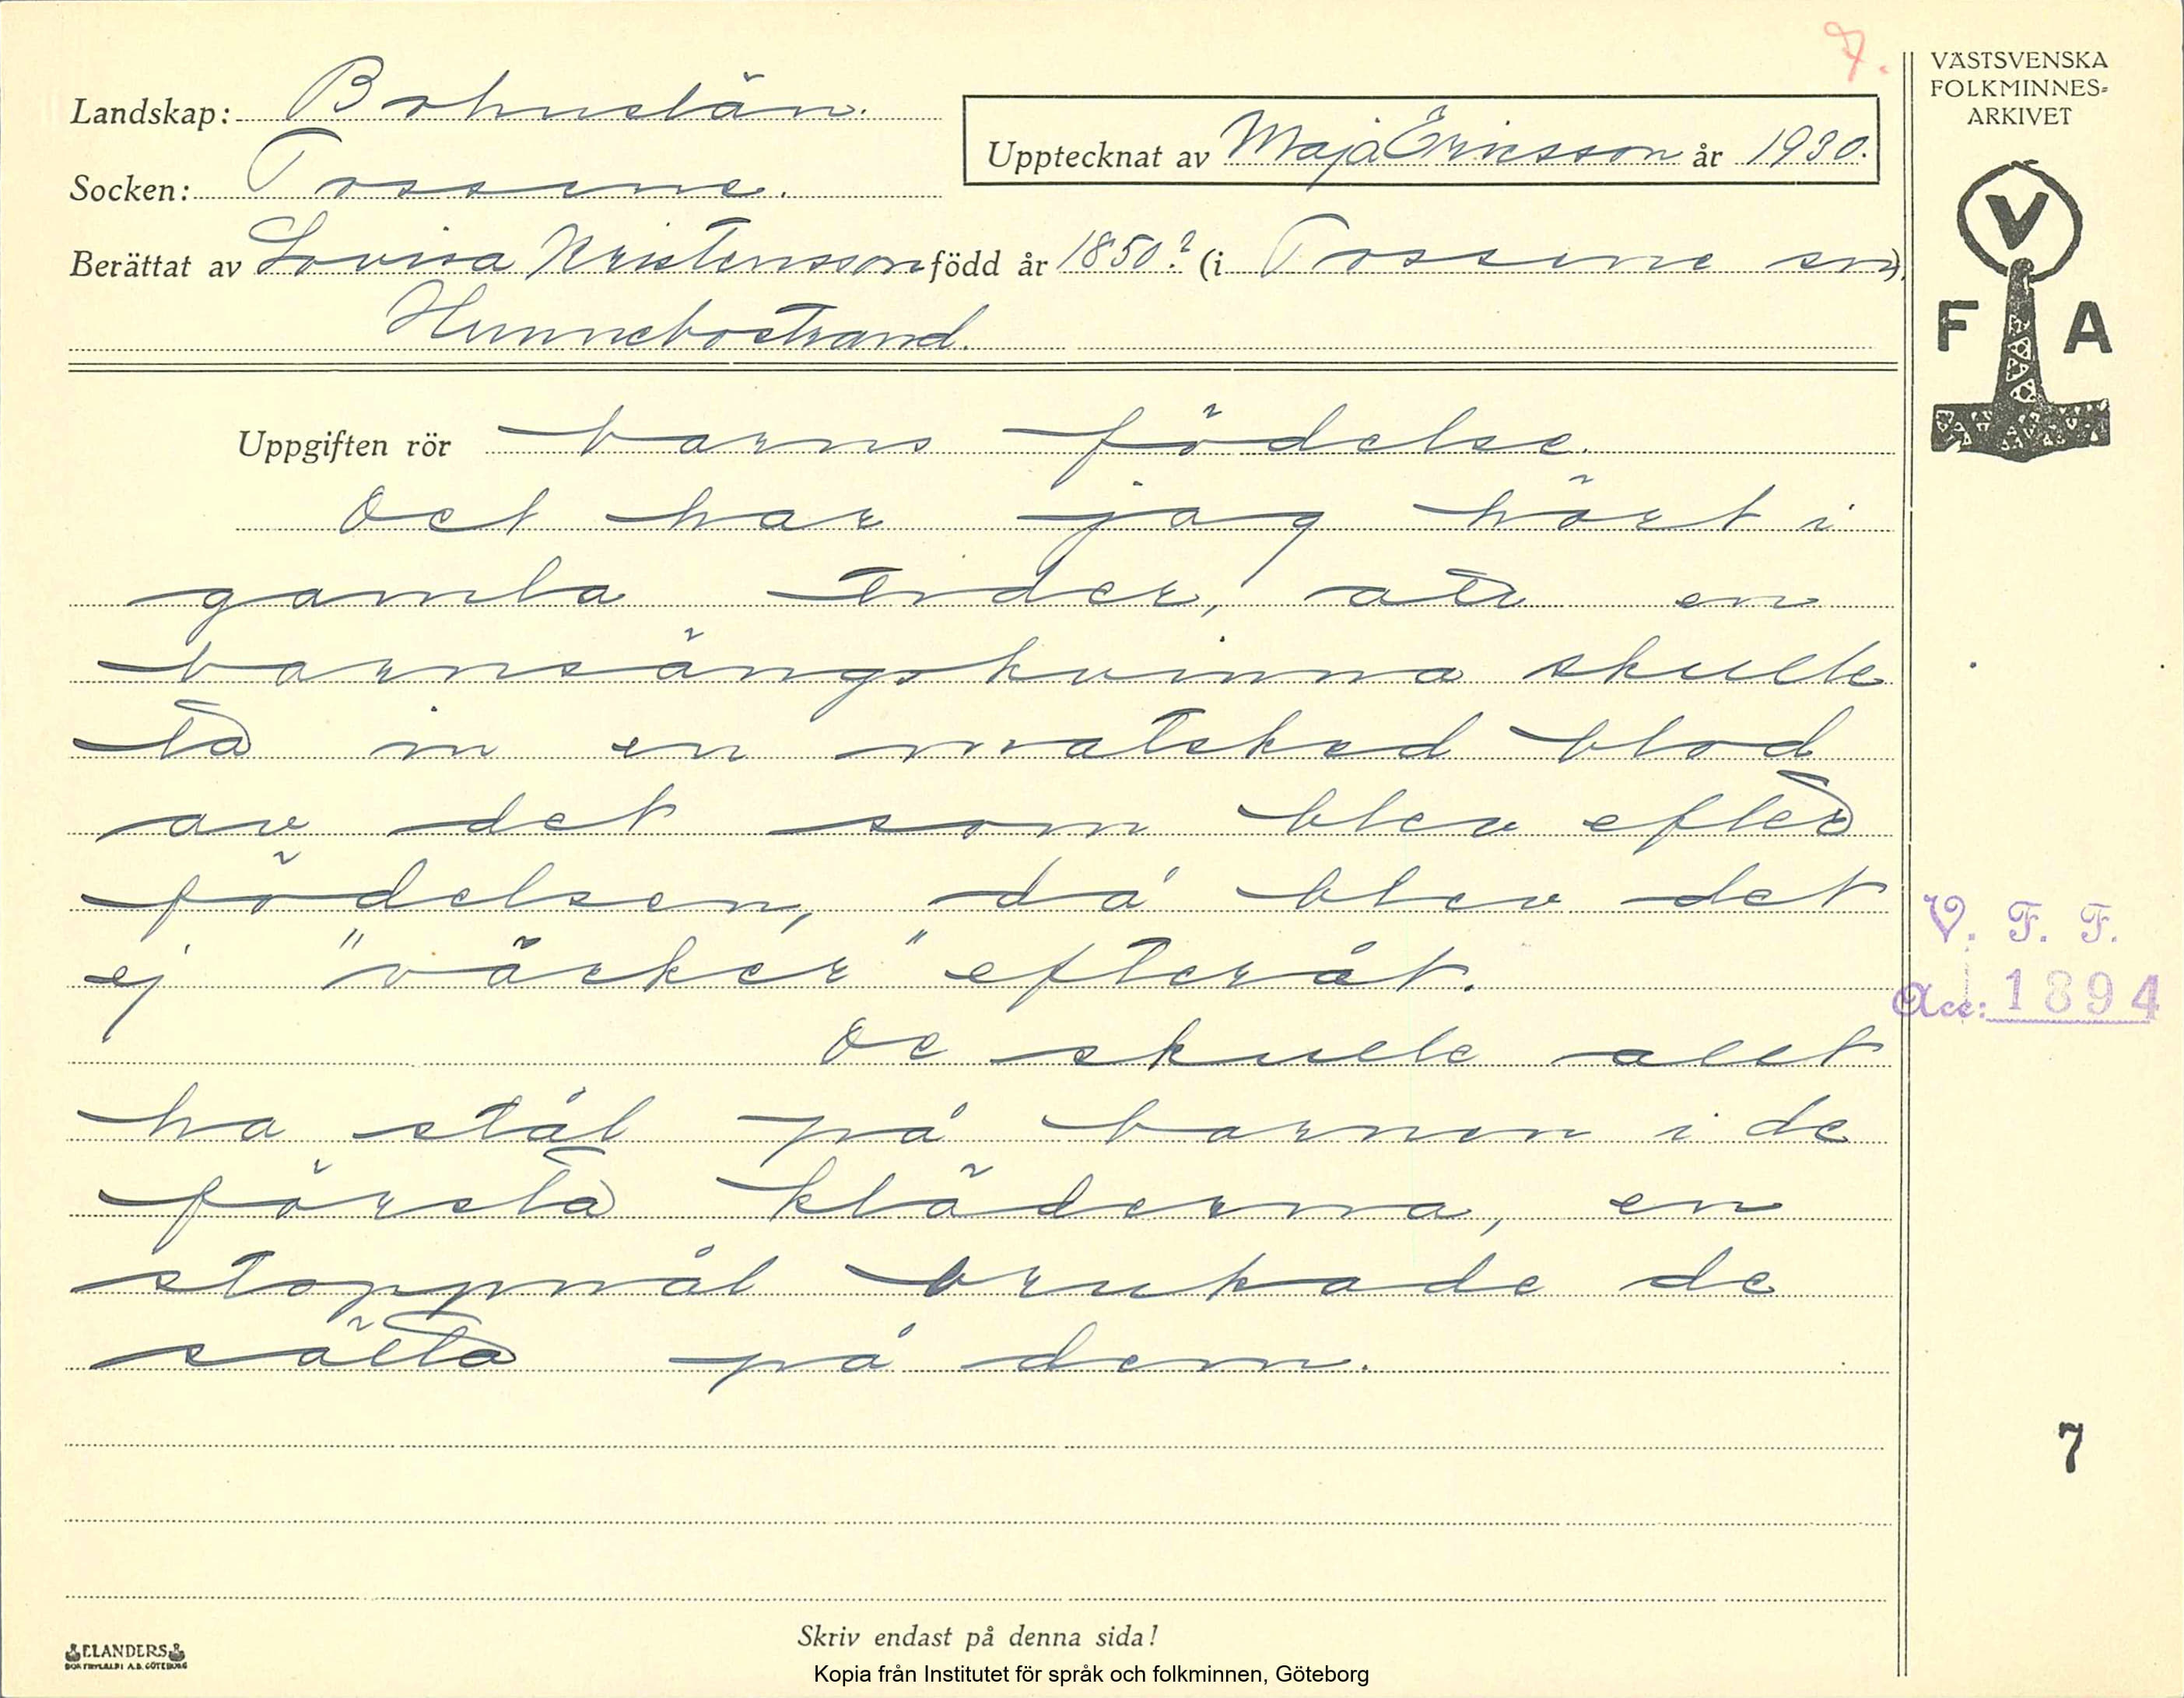 7.
Landskap: Bohuslän.
Upptecknat av Maja Ericsson år 1930.
Socken: Tossene.
Berättat av Lovisa Kristensson född år 1850? (i Tossene sn),
Hunnebostrand.
VÄSTSVENSKA
FOLKMINNES-
ARKIVET
V
F A
Uppgiften rör barns födelse.
Det har jag hört i
gamla tider, att en
barnsängskvinna skulle
ta in en matsked blod
av det som blev efter
födelsen, då blev det
ej "värker" efteråt.
De skulle allt
ha stål på barnen i de
första kläderna, en
stoppnål brukade de
sätta på dem.
V. F. F.
Acc: 1894
7
Skriv endast på denna sida!
ELANDERS
BOKTRYCKERI A.B. GÖTEBORG
Kopia från Institutet för språk och folkminnen, Göteborg